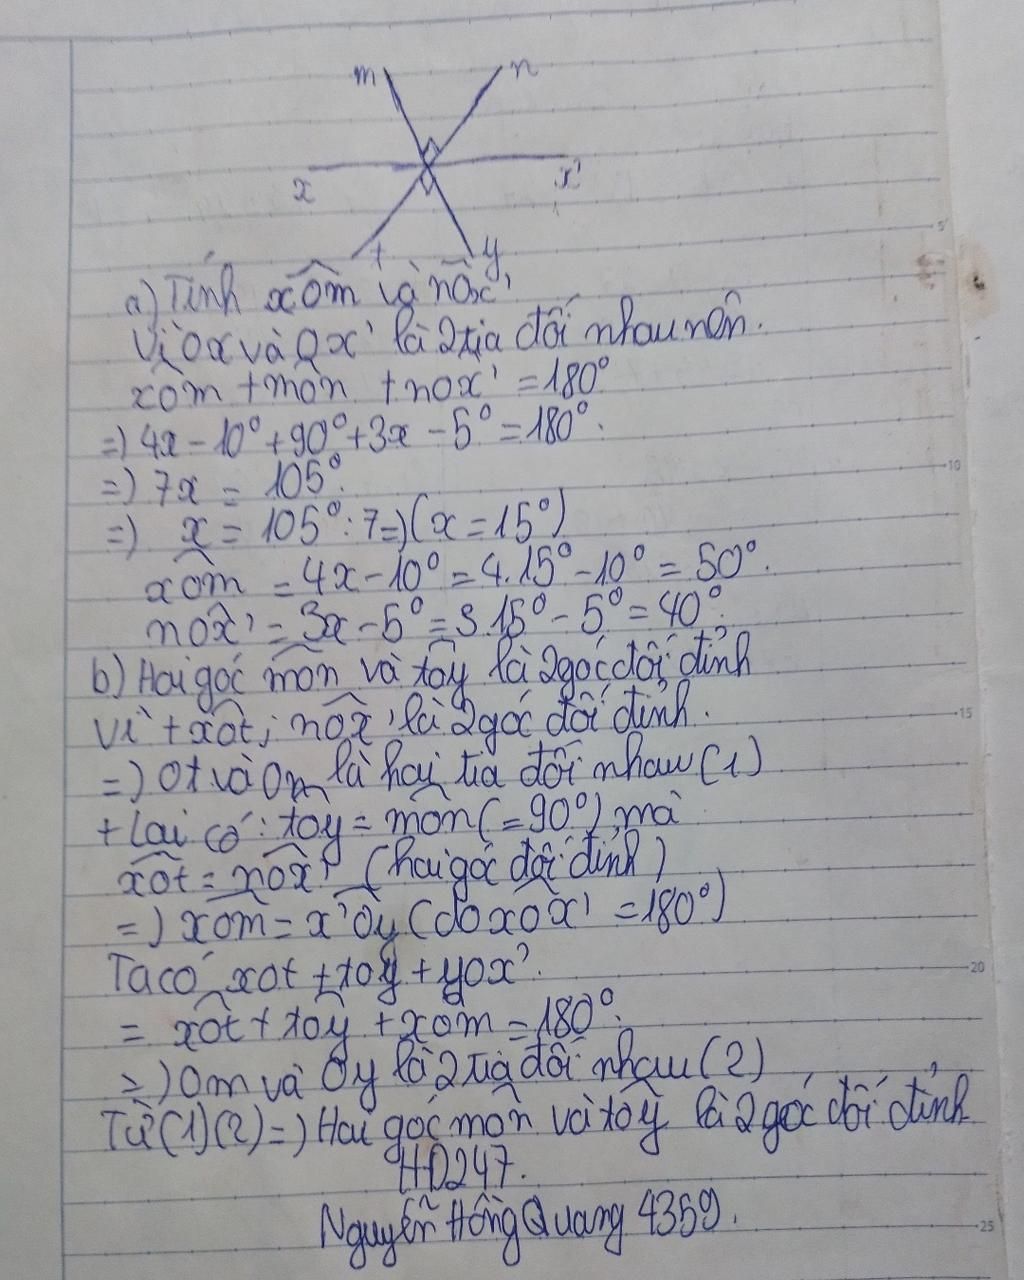 m
n
x
x'
t
y
a) Tính xôm và nôx'
Vì ox và ox' là 2 tia đối nhau nên.
xôm + môn + nox' = 180°
=) 4x - 10° + 90° + 3x - 5° = 180°.
=) 7x = 105°.
=) x = 105° : 7 =) (x = 15°)
xôm = 4x - 10° = 4.15° - 10° = 50°.
nôx' = 3x - 5° = 3.15° - 5° = 40°.
b) Hai góc môn và tôy là 2 góc đối đỉnh
Vì + xôt; nôx' là 2 góc đối đỉnh.
=) Ot và Om là hai tia đối nhau (1)
+ Lại có: tôy = môn (= 90°) mà
xôt = nox' (hai góc đối đỉnh)
=) xôm = x'ôy (do xôx' = 180°)
Ta có xot + toy + yox'.
= xôt + tôy + xôm = 180°.
=) Om và Oy là 2 tia đối nhau (2)
Từ (1) (2) =) Hai góc môn và tôy là 2 góc đối đỉnh
HD247.
Nguyễn Hồng Quang 4359.
5
10
15
20
25